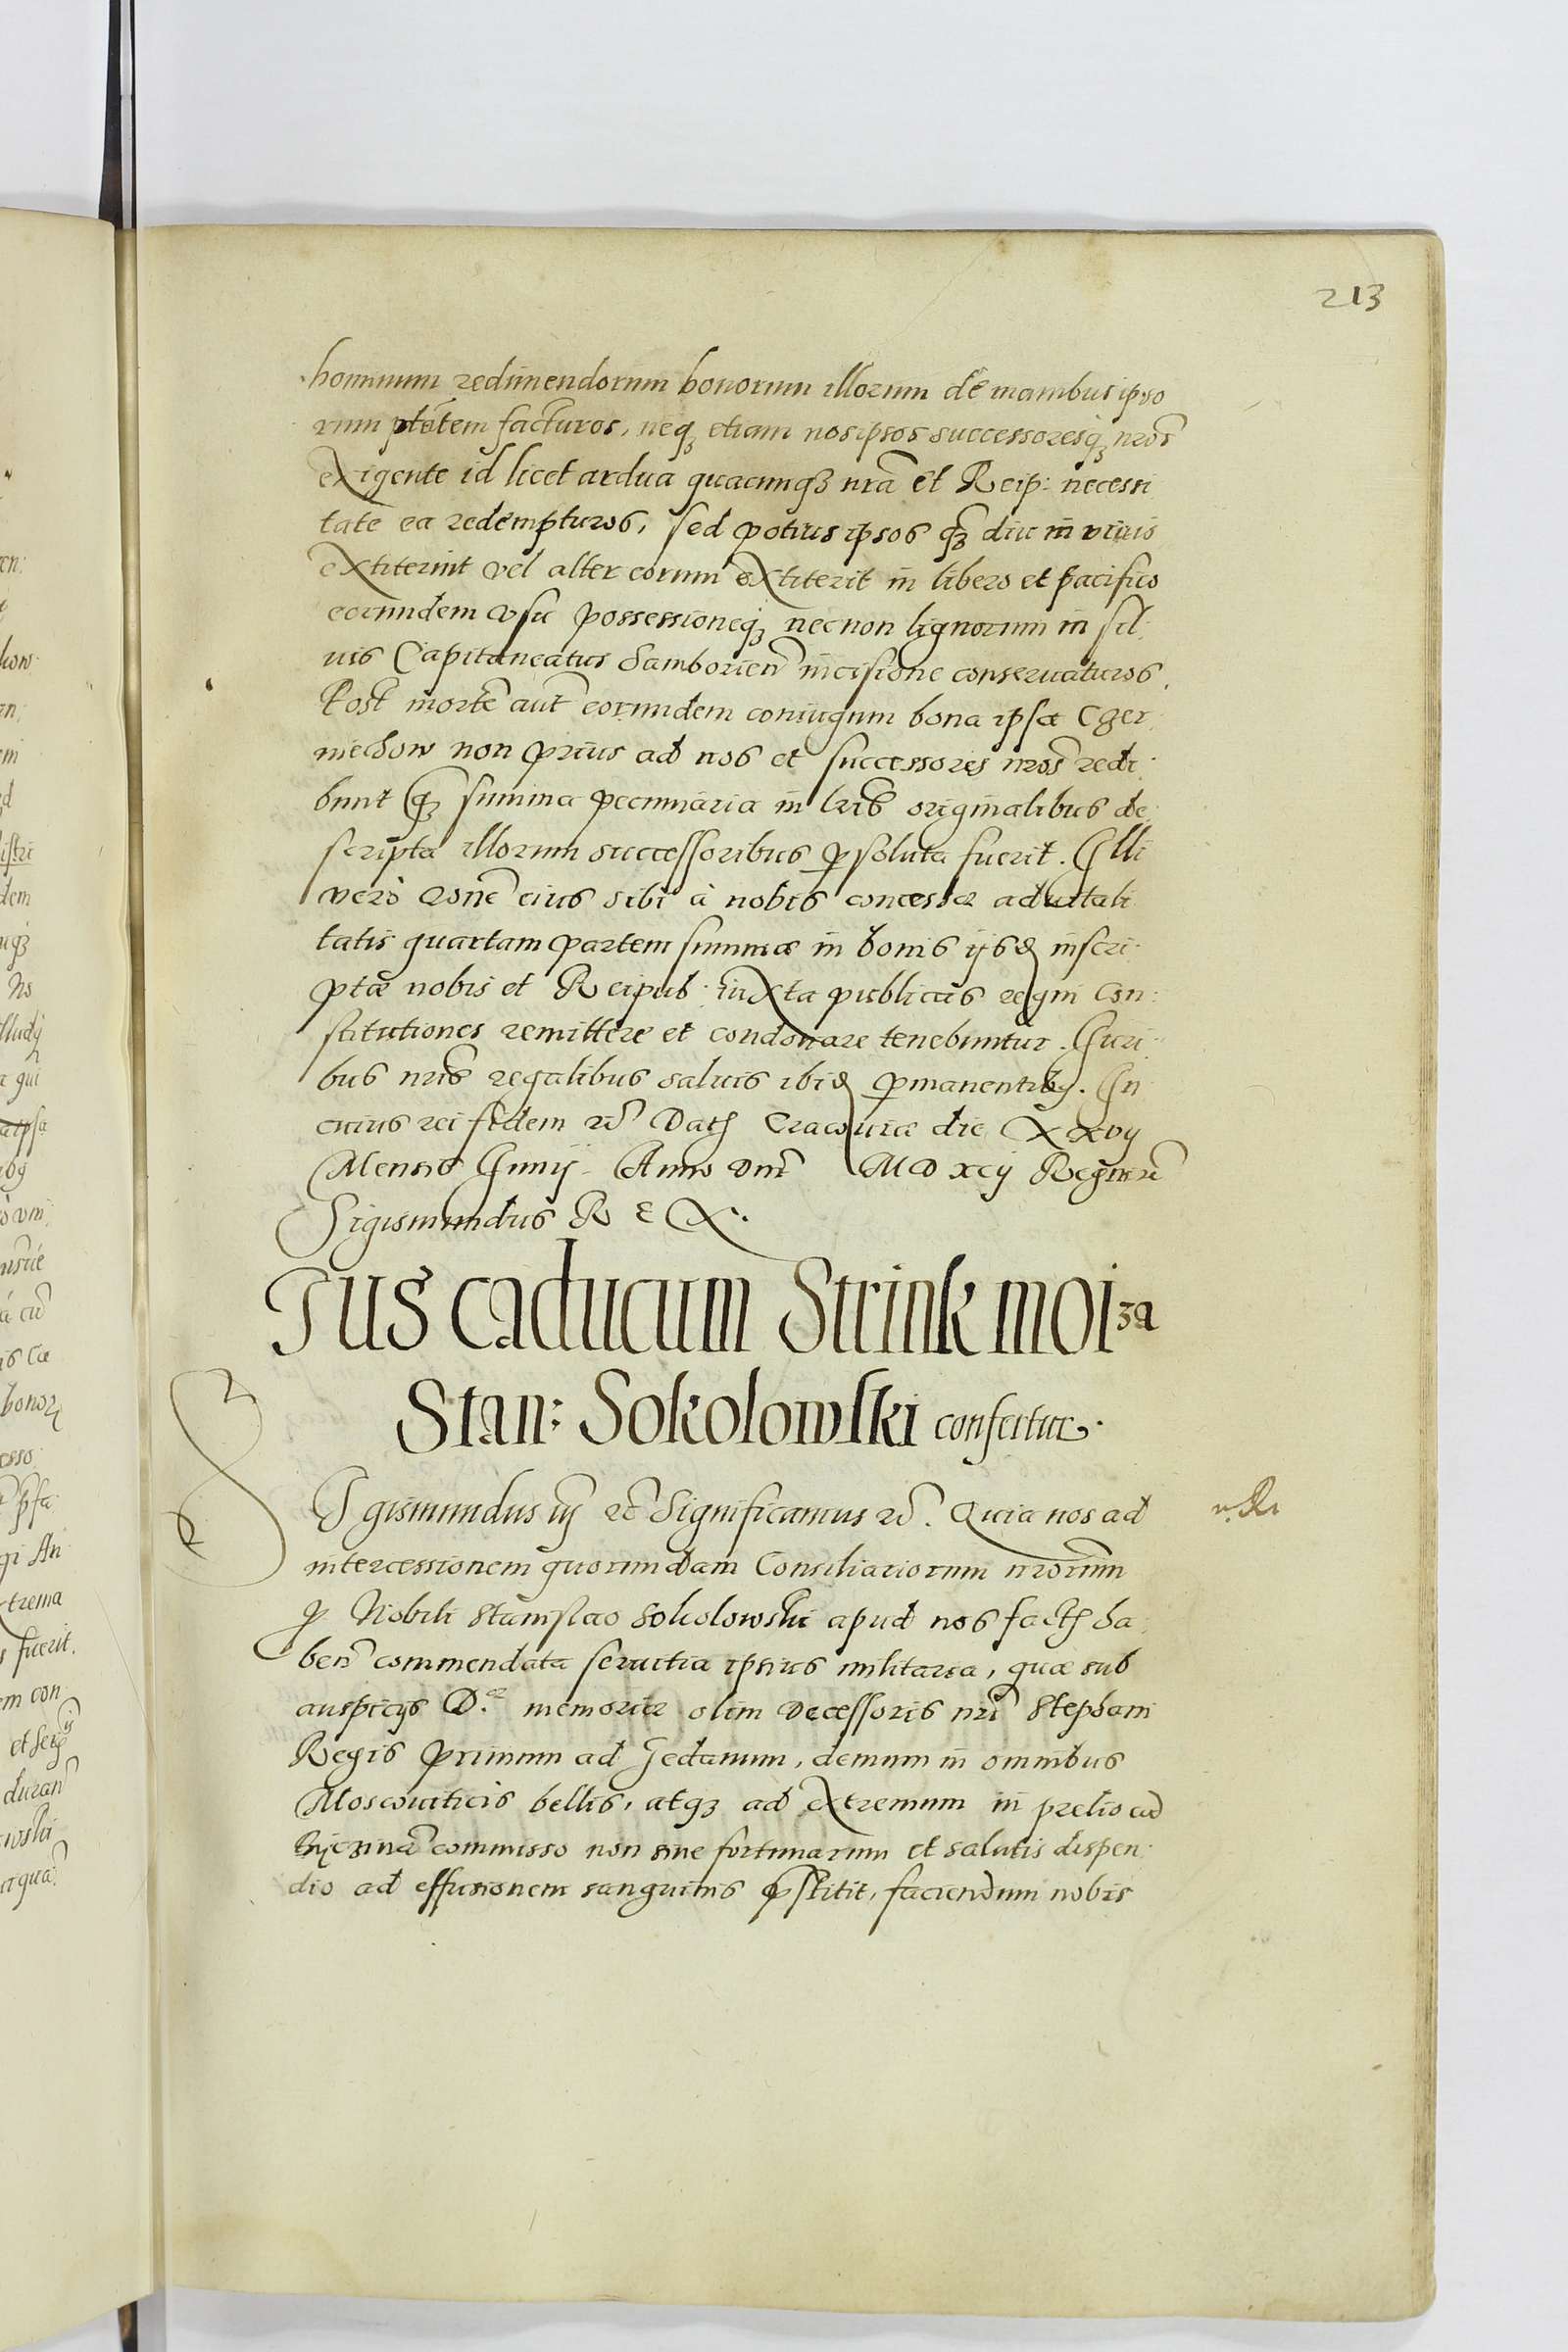 213
hominum redimendorum bonorum illorum de manibus ipso
rum ptãtem facturos, neq3 etiam nosipsos successoresq3 nros
exigente id licet ardua quacunq3 nrã et Reip: necessi
tate ea redempturos, sed potius ipsos q3 diu in viuis
extiterint vel alter eorum extiterit in libero et pacifico
eorundem vsu possessioneq3 necnon lignorum in sil:
uis Capitaneatus Samborien incisione conseruaturos.
Post mortẽ aut eorundem coniugum bona ipsa Czer:
niechow non prius ad nos et successores nros redi:
bunt q3 summa pecuniaria in lris originalibus de:
scripta illorum successoribus psoluta fuerit. Illi
verò rõne eius sibi à nobis concessæ aduitali:
tatis quartam partem summæ in bonis ijsd inscri:
ptæ nobis et Reipub: iuxta publicas regni con:
stitutiones remittere et condonare tenebuntur. Iuri:
bus nris regalibus saluis ibid pmanentibq. In
cuius rei fidem rc Dat Cracouiæ die XXVII
Mensis Iunij Anno Dni MDXCII Regnor
Sigismundus REX.
Jus caducum Strink moiza
Stan: Sokolowski confertur.
Sigismundus iij rc Significamus rc. Quia nos ad
intercessionem quorundam Consiliariorum nrorum
p Nobili Stanislao Sokolowski apud nos fact ha:
ben commendata seruitia ipsius militaria, quæ sub
auspicijs D. memoriæ olim Decessoris nri Stephani
Regis primum ad Gedanum, demum in omnibus
Moscouiticis bellis, atq3 ad extremum in prelio ad
Bycsinã commisso non sine fortunarum et salutis dispen:
dio ad effusionem sanguinis pstitit, faciendum nobis